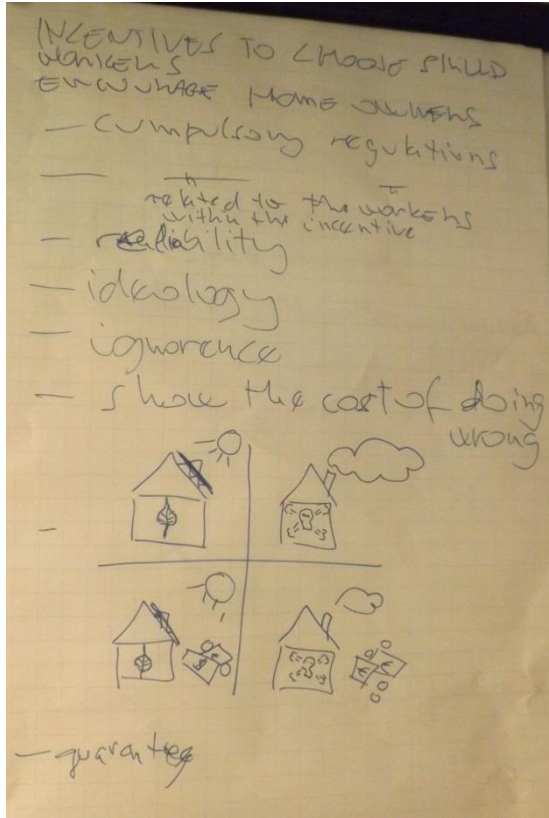 INCENTIVES TO CHOOSE SKILLED
WORKERS
ENCOURAGE HOME OWNERS
— compulsory regulations
— " — " —
related to the workers
within the incentive
— reliability
— ideology
— ignorence
— show the cost of doing
wrong
—
— guarantee